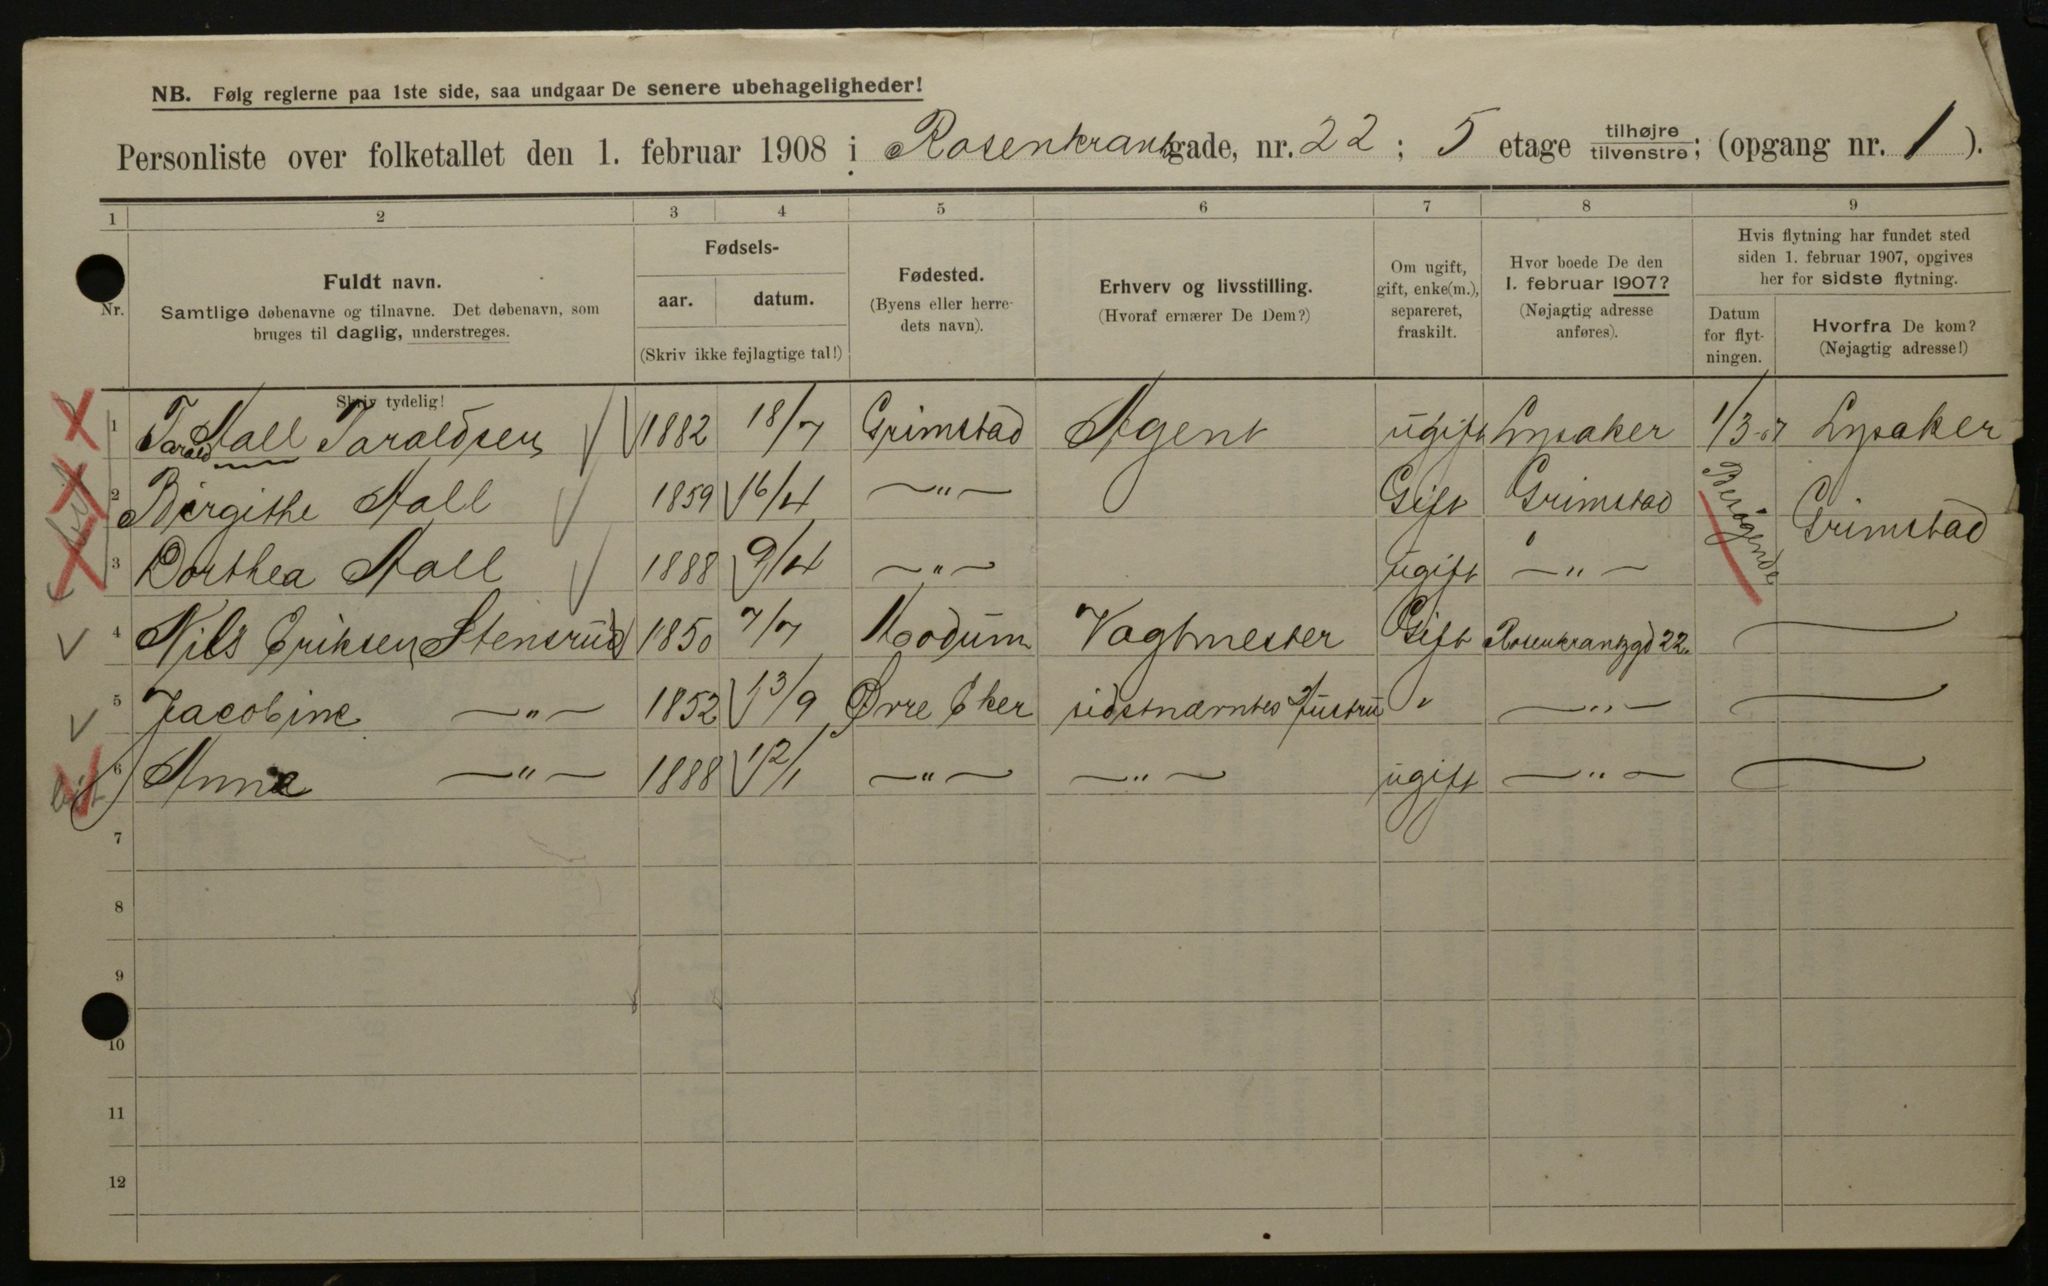 NB. Følg reglerne paa 1ste side, saa undgaar De senere ubehageligheder!
Personliste over folketallet den 1. februar 1908 i Rosenkrantzgade, nr. 22; 5 etage tilhøjre tilvenstre; (opgang nr. 1).
1 2 3 4 5 6 7 8 9
Nr.
Fuldt navn.
Samtlige døbenavne og tilnavne. Det døbenavn, som
bruges til daglig, understreges.
Skriv tydelig!
Fødsels-
aar. datum.
(Skriv ikke fejlagtige tal!)
Fødested.
(Byens eller herre-
dets navn).
Erhverv og livsstilling.
(Hvoraf ernærer De Dem?)
Om ugift,
gift, enke(m.),
separeret,
fraskilt.
Hvor boede De den
1. februar 1907?
(Nøjagtig adresse
anføres).
Hvis flytning har fundet sted
siden 1. februar 1907, opgives
her for sidste flytning.
Datum
for flyt-
ningen.
Hvorfra De kom?
(Nøjagtig adresse!)
1 Tarald Aall Taraldsen 1882 18/7 Grimstad Agent ugift Lysaker 1/3-07 Lysaker
2 Birgithe Aall 1859 16/4 —"— Gift Grimstad Besøgende Grimstad
3 Dorthea Aall 1888 9/4 —"— ugift —"—
4 Nils Eriksen Stensrud 1850 7/7 Modum Vagtmester Gift Rosenkrantzgd 22.
5 Jacobine —"— 1852 13/9 Øvre Eker sidstnævntes Hustru " —"—
6 Anna —"— 1888 12/1 —"— —"— ugift —"—
7
8
9
10
11
12